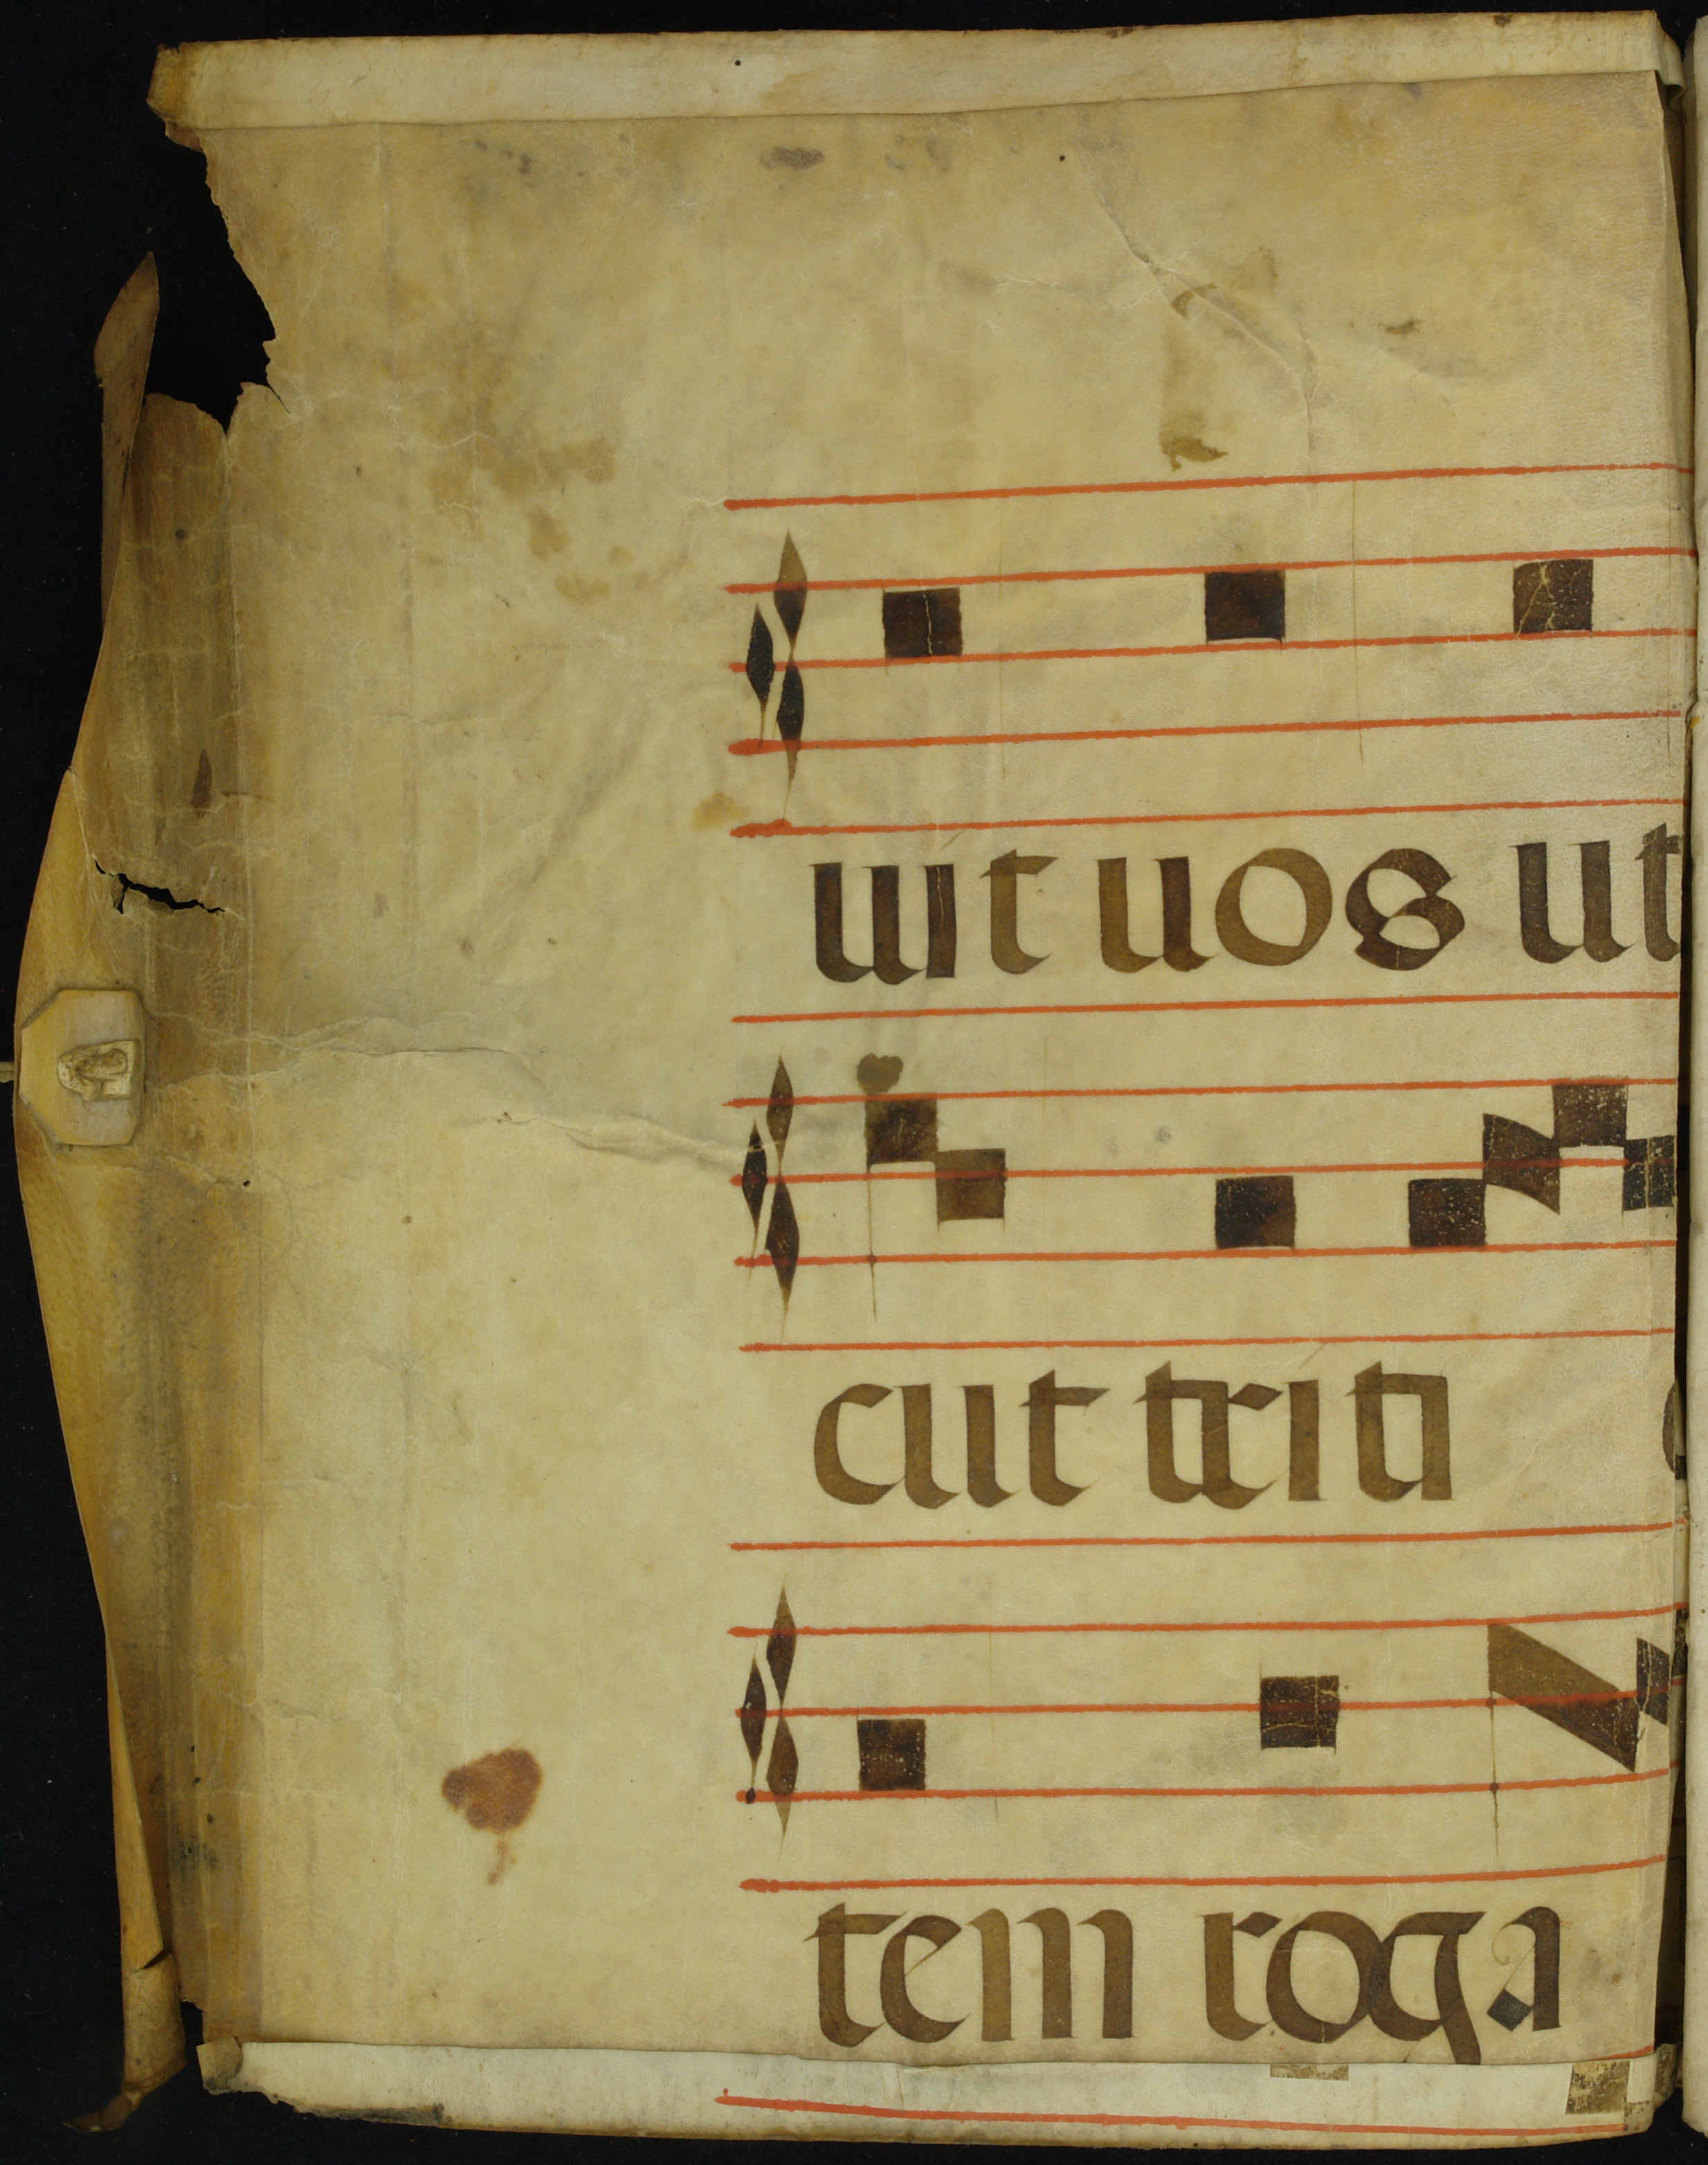 uit uos ut
cut triti
tem roga